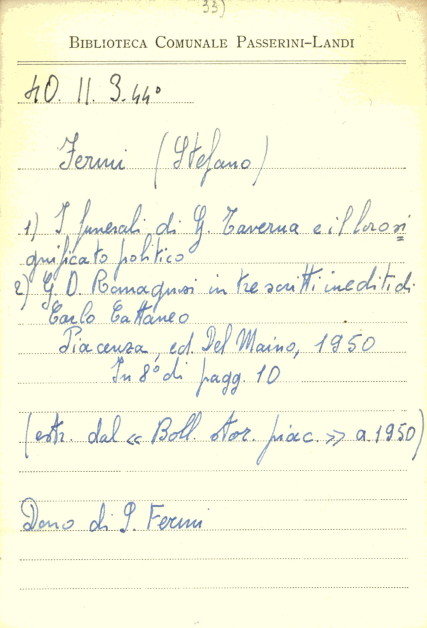 33)
BIBLIOTECA COMUNALE PASSERINI-LANDI
40. II. 3. 44°
Fermi (Stefano)
1) I funerali di G. Taverna e il loro si
gnificato politico
2) G. D. Romagnosi in tre scritti inediti di
Carlo Cattaneo
Piacenza, ed. Del Maino, 1950
In 8° di pagg. 10
(estr. dal « Boll. stor. piac. » a. 1950)
Dono di S. Fermi